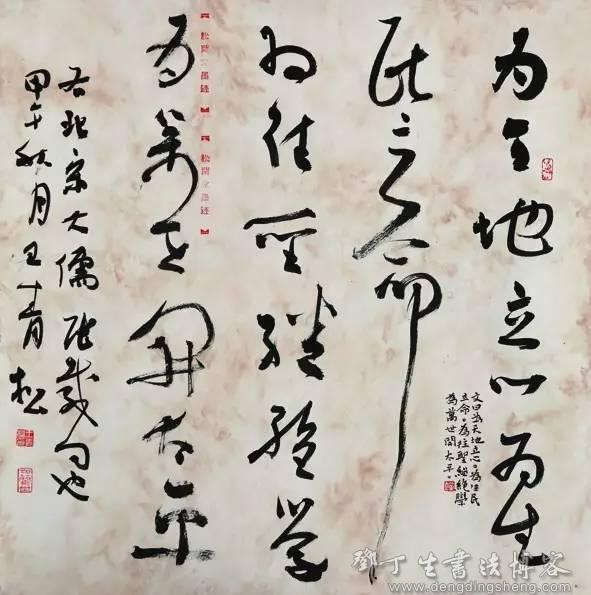 为天地立心为生
民立命
为往聖繼絕学
为萬世開太平
右北宋大儒张载句也
甲午秋月王青松
文曰為天地立心為生民
立命為往聖繼絕學
為萬世開太平
鄧丁生書法博客
www.dengdingsheng.com